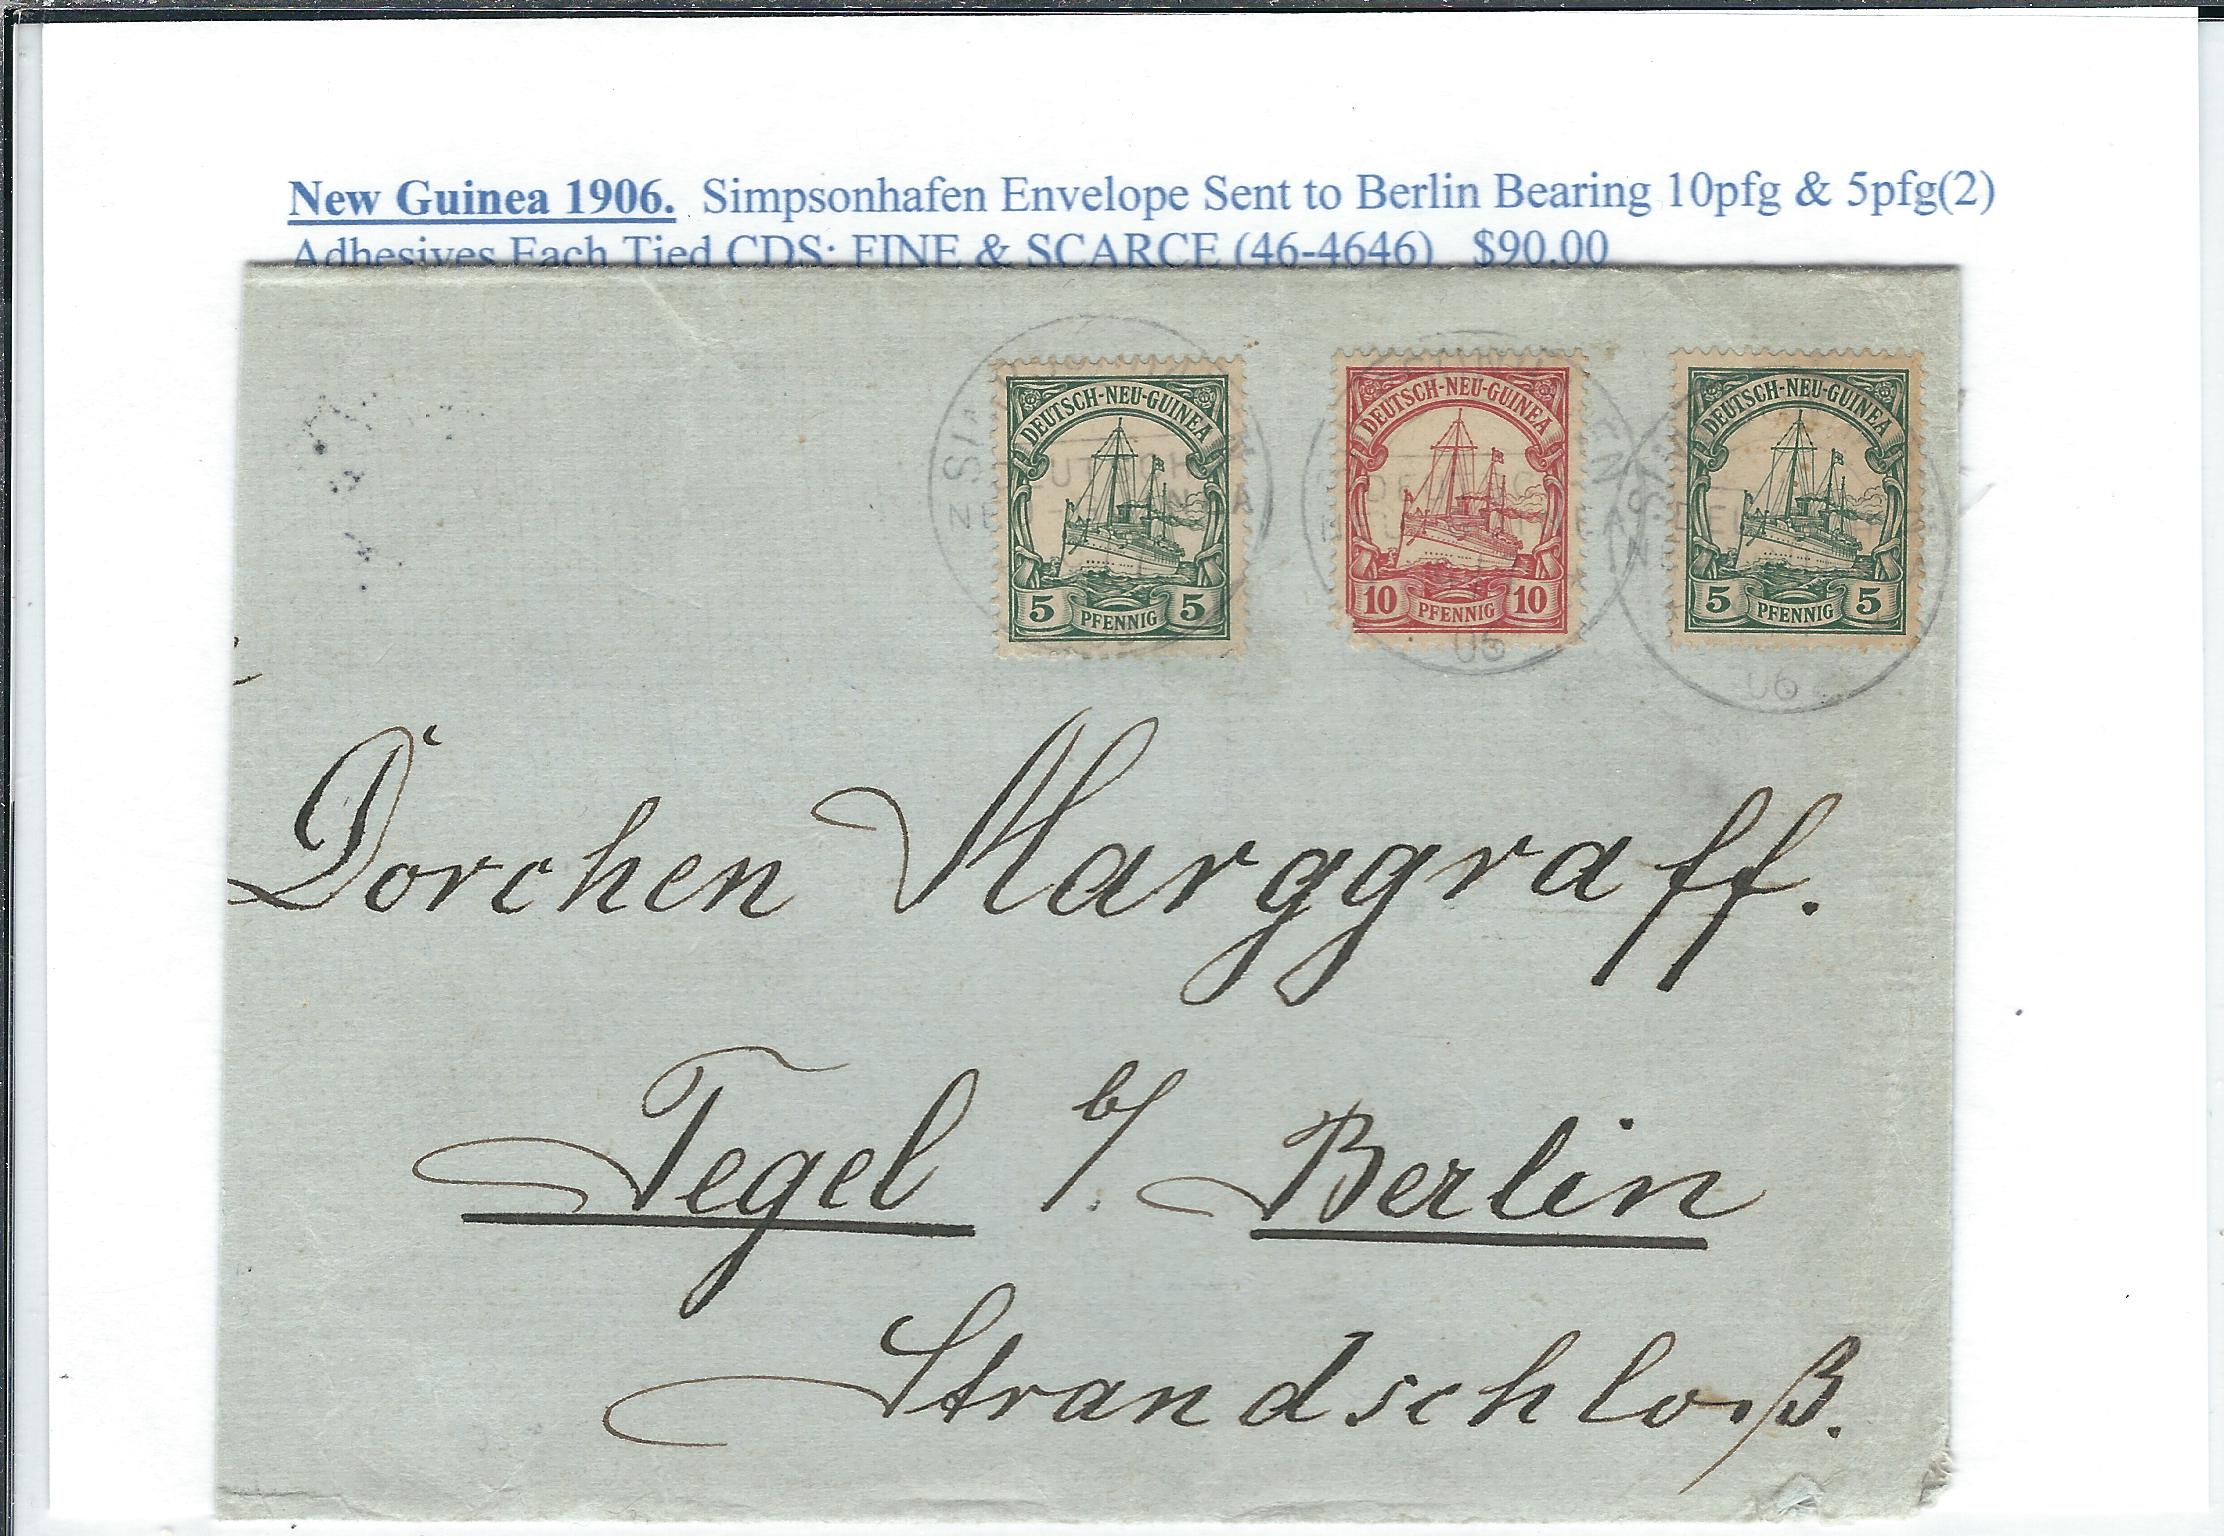 New Guinea 1906. Simpsonhafen Envelope Sent to Berlin Bearing 10pfg & 5pfg(2)
Adhesives Each Tied CDS: FINE & SCARCE (46-4646) $90.00
DEUTSCH-NEU-GUINEA
5 PFENNIG 5
DEUTSCH-NEU-GUINEA
10 PFENNIG 10
06
DEUTSCH-NEU-GUINEA
5 PFENNIG 5
06
Dorchen Marggraff.
Tegel b/. Berlin
Strandschloß.